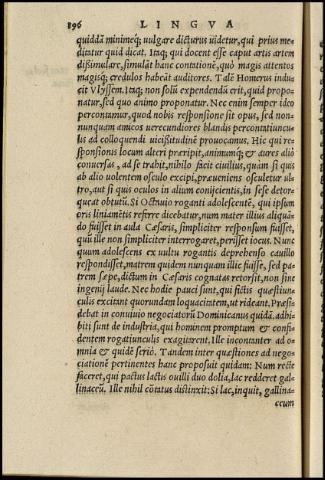 196 LINGVA
quiddã minimeq; vulgare dicturus uidetur, qui prius me-
ditatur quid dicat. Itaq; qui docent esse caput artis artem
dissimulare, simulãt hanc cõtationẽ, quò magis attentos
magisq; credulos habeãt auditores. Talẽ Homerus indu-
cit Vlyssem. Itaq; non solũ expendendũ erit, quid propo-
natur, sed quo animo proponatur. Nec enim semper ideo
percontamur, quod nobis responsione sit opus, sed non-
nunquam amicos uerecundiores blandis percontatiuncu-
lis ad colloquendi uicißitudinẽ prouocamus. Hic qui re-
sponsionis locum alteri præripit, animumq; & aures aliò
conuersas, ad se trahit, nihilo facit ciuilius, quàm si quis
ab alio uolentem osculo excipi, præueniens osculetur ul-
tro, aut si quis oculos in alium conijcientis, in sese detor-
queat obtutũ. Si Octauio roganti adolescentẽ, qui ipsum
oris linianẽtis referre dicebatur, num mater illius aliquã-
do fuisset in aula Cæsaris, simpliciter responsum fuisset,
quũ ille non simpliciter interrogaret, perisset iocus. Nunc
quum adolescens ex uultu rogantis deprehenso cauillo
respondisset, matrem quidem nunquam illic fuisse, sed pa-
trem sæpe, dictum in Cæsaris cognatas retorsit, non sine
ingenij laude. Nec hodie pauci sunt, qui fictis quæstiun-
culis excitant quorundam loquacitatem, ut rideant. Præsi-
debat in conuiuio negociatorũ Dominicanus quidã. adhi-
biti sunt de industria, qui hominem promptum & confi-
dentem rogatiunculis exagitarent. Ille incontanter ad o-
mnia & quidẽ seriò. Tandem inter quæstiones ad nego-
ciationẽ pertinentes hanc proposuit quidam: Num rectè
faceret, qui pactus lactis ouilli duo dolia, lac redderet gal-
linaceũ. Ille nihil cõtatus distinxit: Si lac, inquit, gallina-
ceum